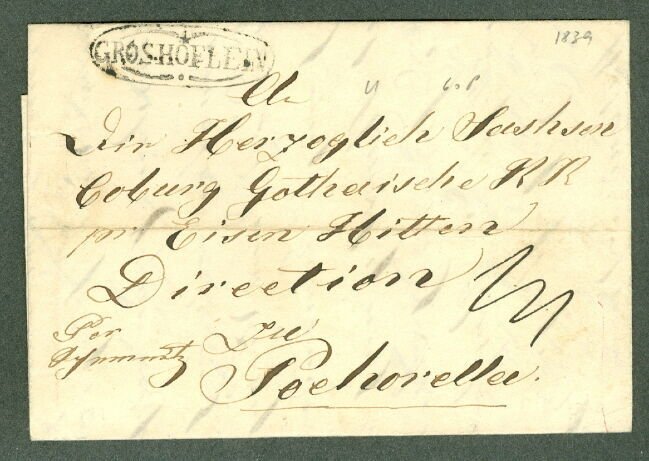 GROSHÖFLEIN
1839
An
Die Herzoglich Sachsen
Coburg Gothaische K K
pr Eisen Hitten
Direction
Per
Zu
Pochorella.